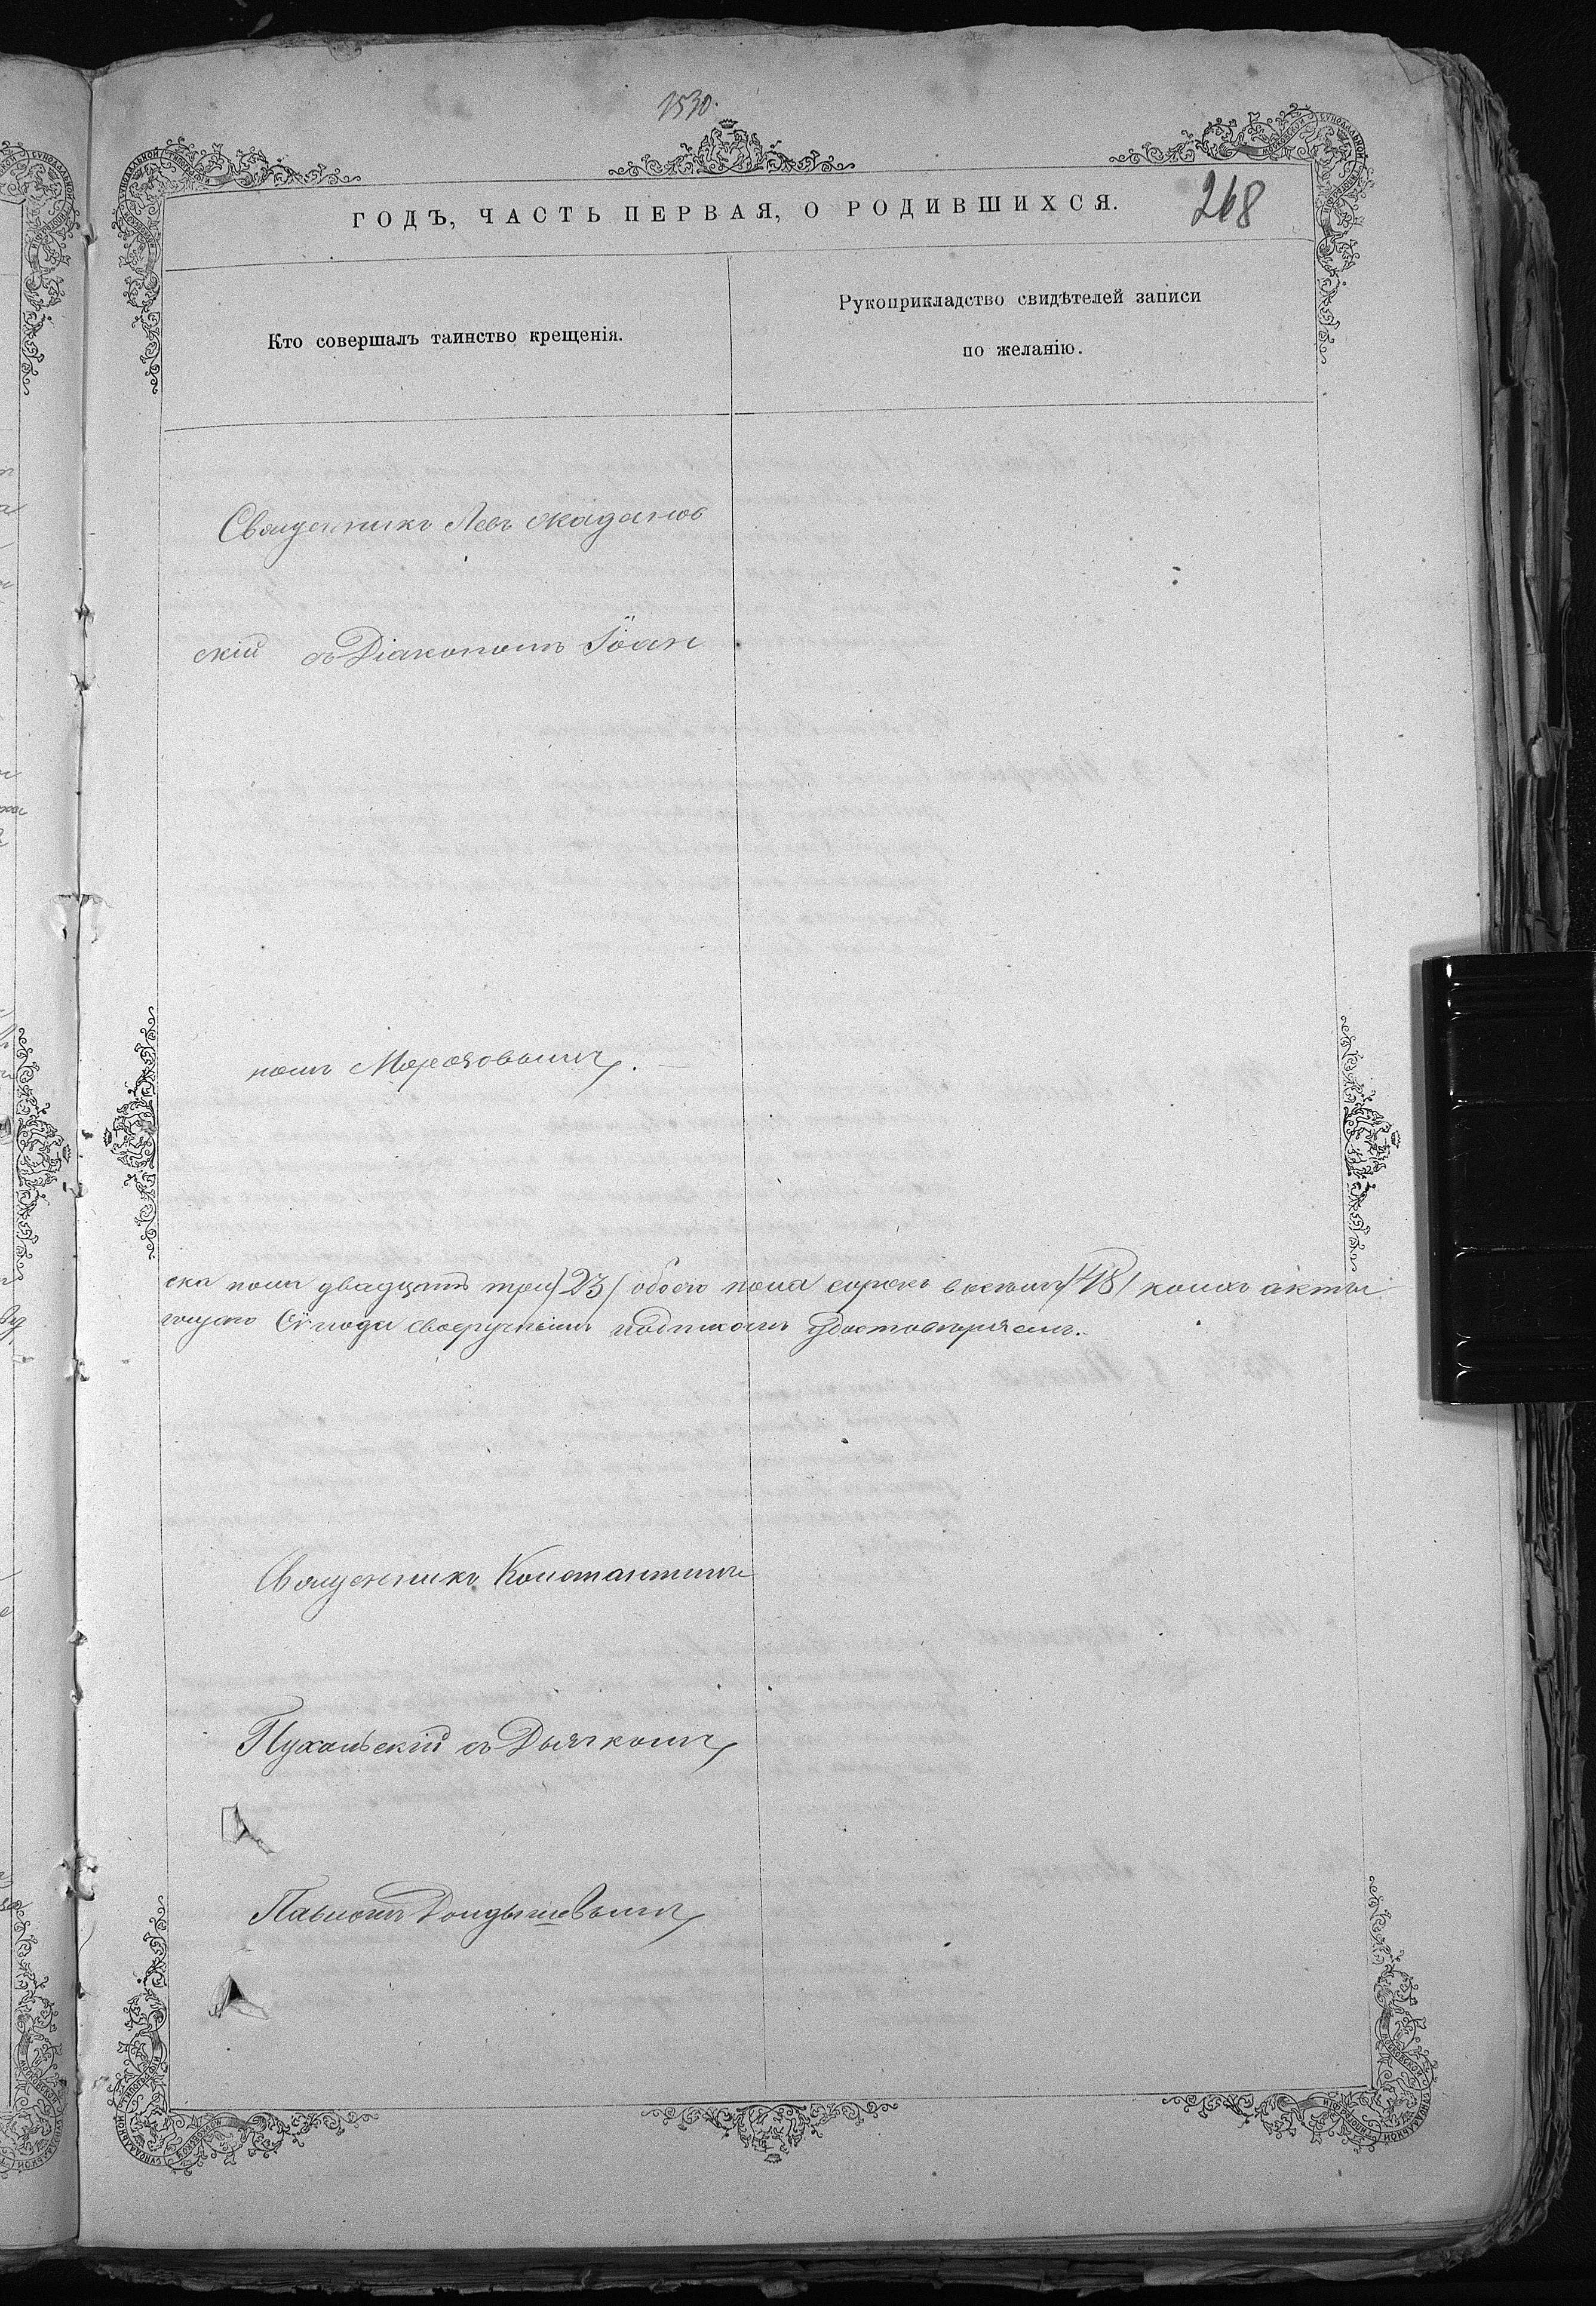 1530.
268
ГОДЪ, ЧАСТЬ ПЕРВАЯ, О РОДИВШИХСЯ.
Кто совершалъ таинство крещенія.
Рукоприкладство свидѣтелей записи
по желанію.
Священникъ Левъ
скій съ Діакономъ Іоан
номъ Морозовымъ.
ска пола двадцать три /23/ обоего пола сорокъ восемь /48/ коихъ акты
Сѵнода своеручнымъ удостовѣряемъ.
Священникъ Константинъ
Пухальскій съ Дьячкомъ